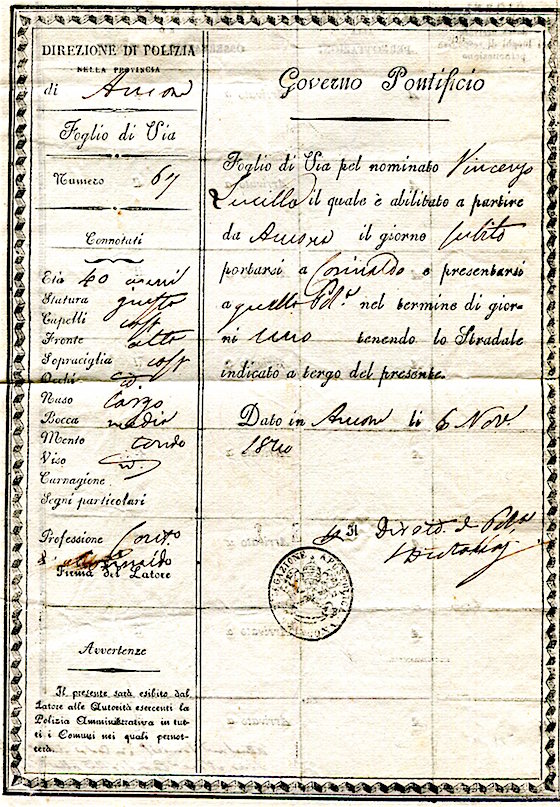 DIREZIONE DI POLIZIA
NELLA PROVINCIA
di Ancona
Foglio di Via
Numero 67
Connotati
Età 40 anni
Statura giusta
Capelli cast
Fronte alta
Sopraciglia cast
Occhi id.
Naso largo
Bocca media
Mento tondo
Viso id.
Carnagione
Segni particolari
Professione
Firma del Latore
Avvertenze
Il presente sarà esibito dal
Latore alle Autorità esercenti la
Polizia Amministrativa in tut-
ti i Comuni nei quali pernot-
terà.
Governo Pontificio
Foglio di Via pel nominato Vincenzo
Lucilla il quale è abilitato a partire
da Ancona il giorno subito
portarsi a Corinaldo e presentarsi
a quella Pol.ª nel termine di gior-
ni uno tenendo lo Stradale
indicato a tergo del presente.
Dato in Ancona li 6 Nov.
1840
Il Dirett. di Pol.ª
DELEGAZIONE APOSTOLICA ANCONA